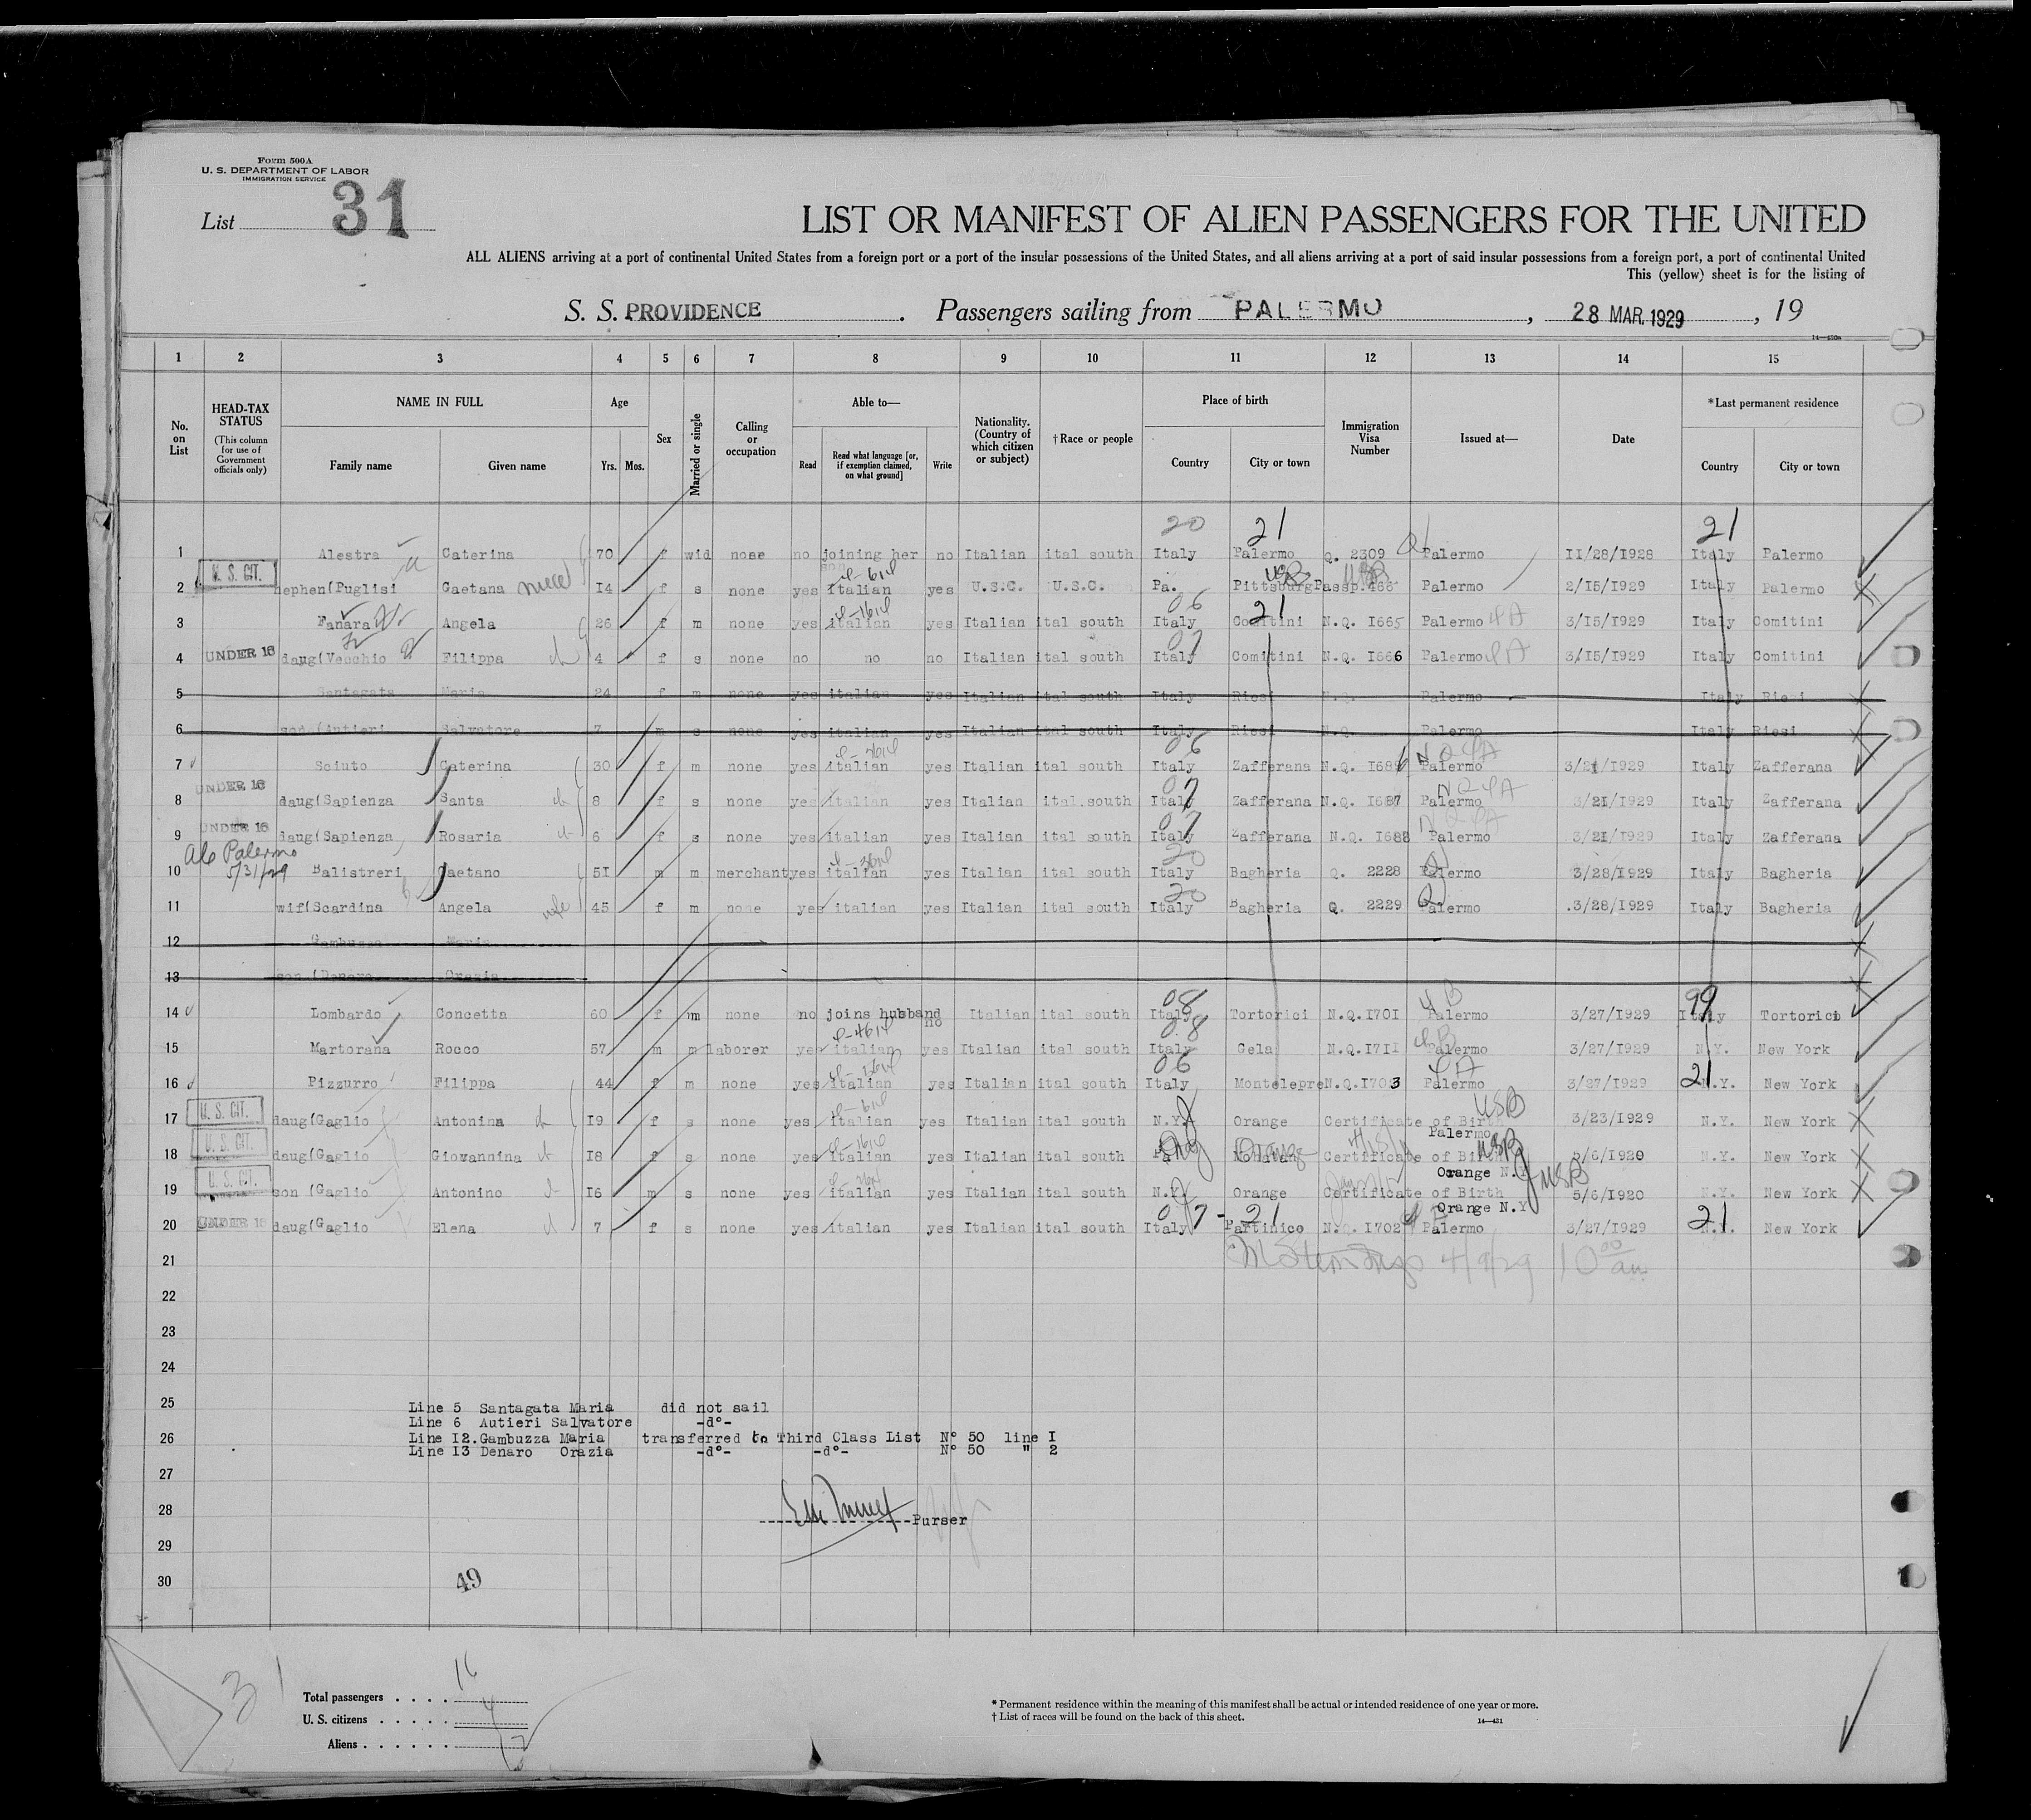 Form 500A
U. S. DEPARTMENT OF LABOR
IMMIGRATION SERVICE
List 31
LIST OR MANIFEST OF ALIEN PASSENGERS FOR THE UNITED
ALL ALIENS arriving at a port of continental United States from a foreign port or a port of the insular possessions of the United States, and all aliens arriving at a port of said insular possessions from a foreign port, a port of continental United
This (yellow) sheet is for the listing of
S. S. PROVIDENCE . Passengers sailing from PALERMO , 28 MAR. 1929 , 19
14—430a
1 2 3 4 5 6 7 8 9 10 11 12 13 14 15
No. on List
HEAD-TAX STATUS (This column for use of Government officials only)
NAME IN FULL
Family name Given name
Age
Yrs. Mos.
Sex
Married or single
Calling or occupation
Able to—
Read Read what language [or, if exemption claimed, on what ground] Write
Nationality. (Country of which citizen or subject)
†Race or people
Place of birth
Country City or town
Immigration Visa Number
Issued at—
Date
*Last permanent residence
Country City or town
20 21 21
1 Alestra Caterina 70 f wid none no joining her no Italian ital south Italy Palermo Q. 2309 Palermo II/28/1928 Italy Palermo
son
2 U. S. CIT. nephen(Puglisi Gaetana niece I4 f s none yes italian yes U.S.C. U.S.C. Pa. Pittsburg Passp.466 Palermo 2/I5/1929 Italy Palermo
06 21
3 Fanara Angela 26 f m none yes italian yes Italian ital south Italy Comitini N.Q. I665 Palermo 3/I5/1929 Italy Comitini
07
4 UNDER 16 daug(Vecchio Filippa 4 f s none no no no Italian ital south Italy Comitini N.Q. I666 Palermo 3/I5/1929 Italy Comitini
5 Santagata Maria 24 f m none yes italian yes Italian ital south Italy Riesi N.Q. Palermo Italy Riesi
6 son (Autieri Salvatore 7 m s none yes italian yes Italian ital south Italy Riesi N.Q. Palermo Italy Riesi
06
7 Sciuto Caterina 30 f m none yes italian yes Italian ital south Italy Zafferana N.Q. I686 Palermo 3/21/1929 Italy Zafferana
07
8 UNDER 16 daug(Sapienza Santa 8 f s none yes italian yes Italian ital.south Italy Zafferana N.Q. I687 Palermo 3/2I/1929 Italy Zafferana
07
9 UNDER 16 daug(Sapienza Rosaria 6 f s none yes italian yes Italian ital south Italy Zafferana N.Q. I688 Palermo 3/2I/1929 Italy Zafferana
Palermo 5/31/29
20
10 Balistreri Gaetano 5I m m merchant yes italian yes Italian ital south Italy Bagheria Q. 2228 Palermo 3/28/1929 Italy Bagheria
20
11 wif(Scardina Angela wife 45 f m none yes italian yes Italian ital south Italy Bagheria Q. 2229 Palermo .3/28/1929 Italy Bagheria
12 Gambuzza Maria
13 son (Denaro Orazia
08 99
14 Lombardo Concetta 60 f m none no joins husband no Italian ital south Italy Tortorici N.Q.I70I Palermo 3/27/1929 Italy Tortorici
08
15 Martorana Rocco 57 m m laborer yes italian yes Italian ital south Italy Gela N.Q.I7II Palermo 3/27/1929 N.Y. New York
06 21
16 Pizzurro Filippa 44 f m none yes italian yes Italian ital south Italy Montelepre N.Q.I703 Palermo 3/27/1929 N.Y. New York
17 U. S. CIT. daug(Gaglio Antonina I9 f s none yes italian yes Italian ital south N.Y. Orange Certificate of Birth USB 3/23/1929 N.Y. New York
Palermo
18 U. S. CIT. daug(Gaglio Giovannina I8 f s none yes italian yes Italian ital south Orange Certificate of Birth USB 5/6/1920 N.Y. New York
Orange N.Y
19 U. S. CIT. son (Gaglio Antonino I6 m s none yes italian yes Italian ital south N.Y. Orange Certificate of Birth USB 5/6/1920 N.Y. New York
Orange N.Y
07 - 21 21
20 UNDER 16 daug(Gaglio Elena 7 f s none yes italian yes Italian ital south Italy Partinico N.Q. I702 Palermo 3/27/1929 N.Y. New York
21 4/9/29 10 00 am
22
23
24
25
Line 5 Santagata Maria did not sail
Line 6 Autieri Salvatore -d°-
26
Line I2.Gambuzza Maria transferred to Third Class List N° 50 line I
Line I3 Denaro Orazia -d°- -d°- N° 50 " 2
27
28
Purser
29
30
49
31
Total passengers . . . . 16
U. S. citizens . . . . . 4
Aliens . . . . . . 12
* Permanent residence within the meaning of this manifest shall be actual or intended residence of one year or more.
† List of races will be found on the back of this sheet.
14—431